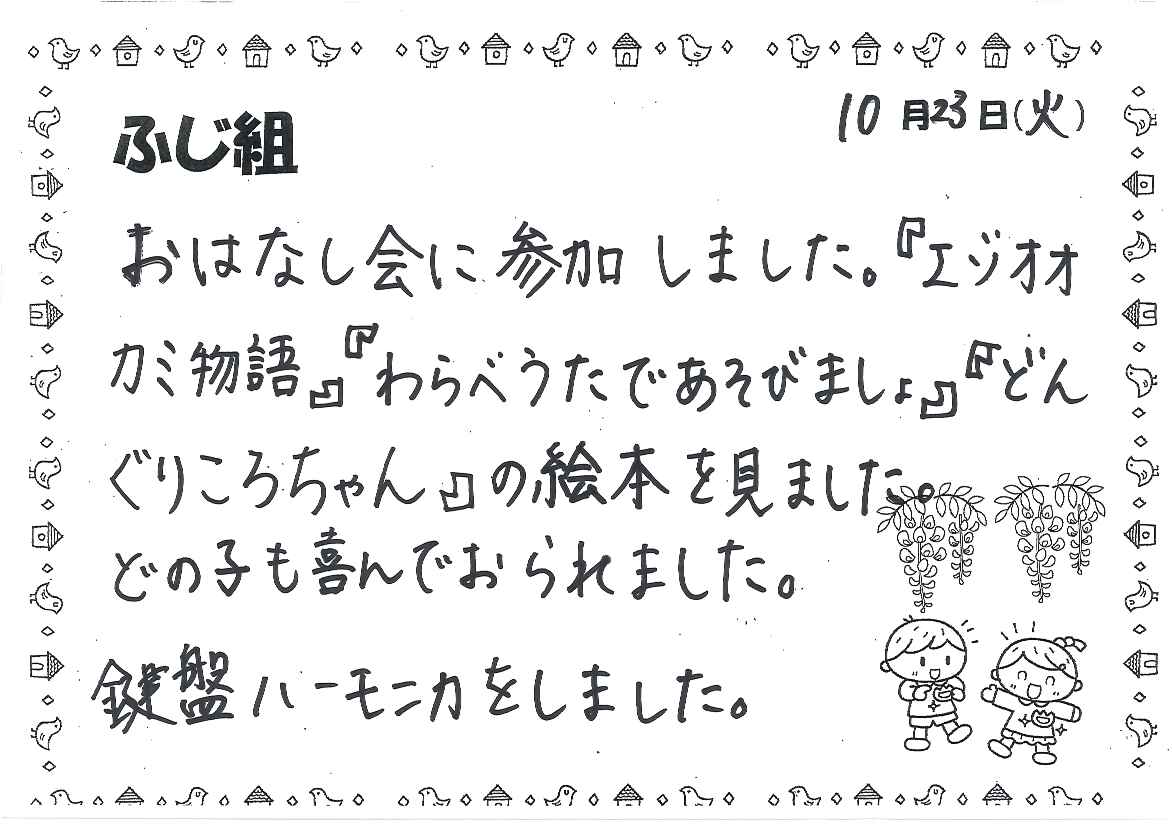 10月23日(火)
ふじ組
おはなし会に参加しました。『エゾオオ
カミ物語』『わらべうたであそびましょ』『どん
ぐりころちゃん』の絵本を見ました。
どの子も喜んでおられました。
鍵盤ハーモニカをしました。